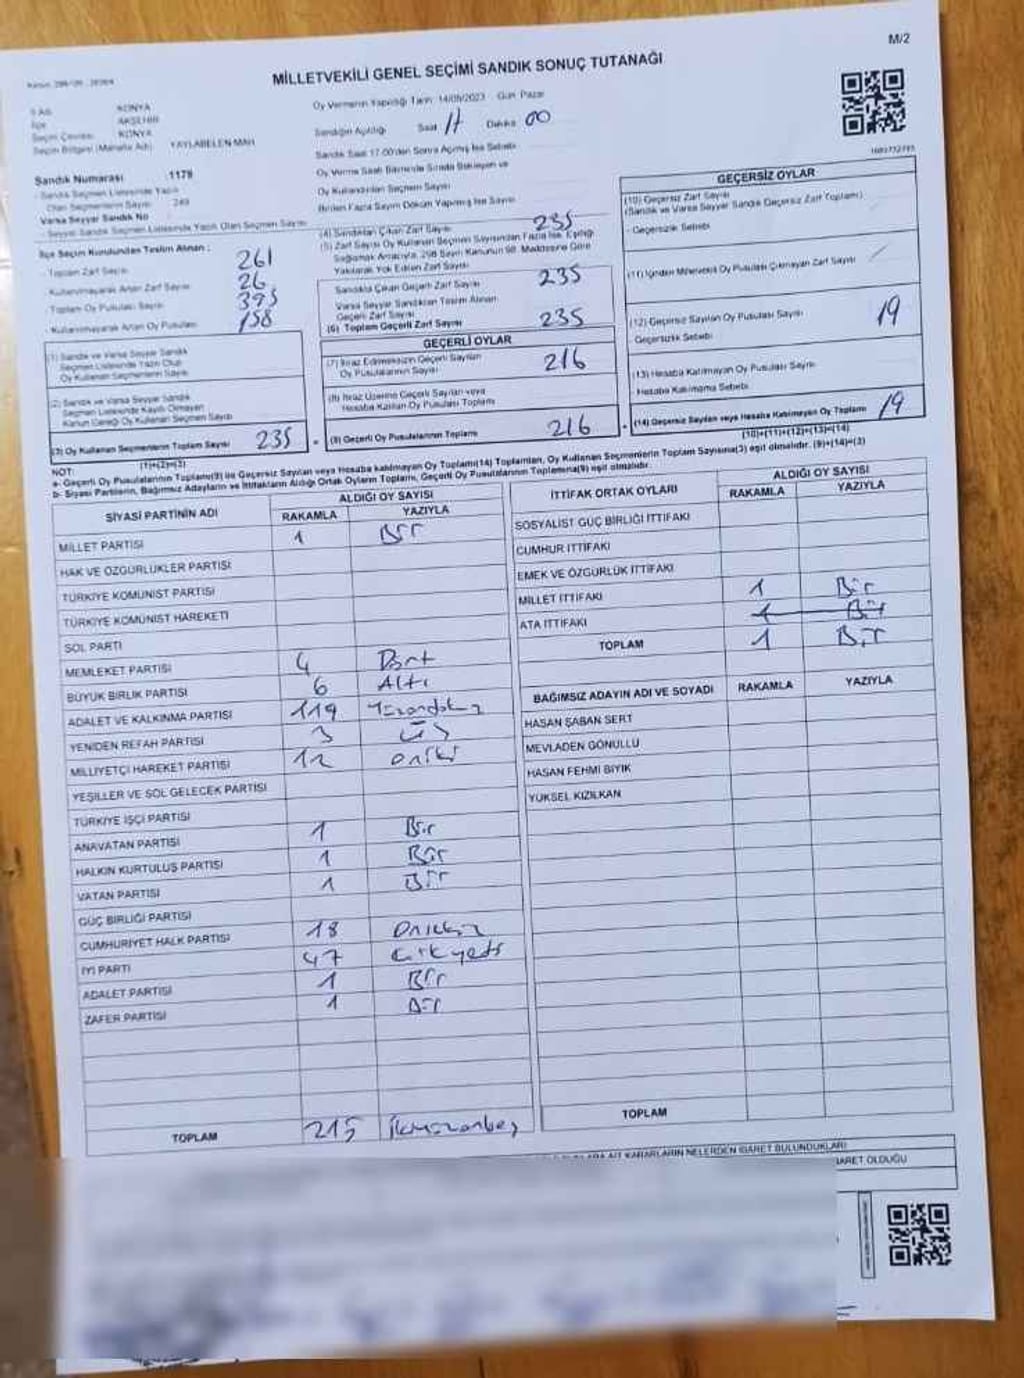 M/2
MİLLETVEKİLİ GENEL SEÇİMİ SANDIK SONUÇ TUTANAĞI
İl Adı KONYA
İlçe AKŞEHİR
Seçim Çevresi KONYA
Seçim Bölgesi (Mahalle Adı) YAYLABELEN MAH
Oy Vermenin Yapıldığı Tarih 14/05/2023 Gün Pazar
Sandığın Açıldığı Saat 17 Dakika 00
Sandık Saat 17:00'den Sonra Açılmış İse Sebebi
Oy Verme Saati Bitiminde Sırada Bekleyen ve
Oy Kullandırılan Seçmen Sayısı
Birden Fazla Sayım Döküm Yapılmış İse Sayısı
Sandık Numarası 1178
- Sandık Seçmen Listesinde Yazılı
Olan Seçmenlerin Sayısı 249
Varsa Seyyar Sandık No
- Seyyar Sandık Seçmen Listesinde Yazılı Olan Seçmen Sayısı
İlçe Seçim Kurulundan Teslim Alınan :
- Toplam Zarf Sayısı 261
- Kullanılmayarak Artan Zarf Sayısı 26
- Toplam Oy Pusulası Sayısı 393
- Kullanılmayarak Artan Oy Pusulası 158
(1) Sandık ve Varsa Seyyar Sandık
Seçmen Listesinde Yazılı Olup
Oy Kullanan Seçmenlerin Sayısı
(2) Sandık ve Varsa Seyyar Sandık
Seçmen Listesinde Kayıtlı Olmayan
Kanun Gereği Oy Kullanan Seçmen Sayısı
(3) Oy Kullanan Seçmenlerin Toplam Sayısı 235
(1)+(2)=(3)
(4) Sandıktan Çıkan Zarf Sayısı 235
(5) Zarf Sayısı Oy Kullanan Seçmen Sayısından Fazla İse, Eşitliği
Sağlamak Amacıyla, 298 Sayılı Kanunun 98. Maddesine Göre
Yakılarak Yok Edilen Zarf Sayısı
Sandıkta Çıkan Geçerli Zarf Sayısı 235
Varsa Seyyar Sandıktan Teslim Alınan
Geçerli Zarf Sayısı
(6) Toplam Geçerli Zarf Sayısı 235
GEÇERLİ OYLAR
(7) İtiraz Edilmeksizin Geçerli Sayılan
Oy Pusulalarının Sayısı 216
(8) İtiraz Üzerine Geçerli Sayılan veya
Hesaba Katılan Oy Pusulası Toplamı
(9) Geçerli Oy Pusulalarının Toplamı 216
GEÇERSİZ OYLAR
(10) Geçersiz Zarf Sayısı
(Sandık ve Varsa Seyyar Sandık Geçersiz Zarf Toplamı)
- Geçersizlik Sebebi
(11) İçinden Milletvekili Oy Pusulası Çıkmayan Zarf Sayısı
(12) Geçersiz Sayılan Oy Pusulası Sayısı 19
Geçersizlik Sebebi
(13) Hesaba Katılmayan Oy Pusulası Sayısı
Hesaba Katılmama Sebebi
(14) Geçersiz Sayılan veya Hesaba Katılmayan Oy Toplamı 19
(10)+(11)+(12)+(13)=(14)
NOT:
a- Geçerli Oy Pusulalarının Toplamı(9) ile Geçersiz Sayılan veya Hesaba katılmayan Oy Toplamı(14) Toplamları, Oy Kullanan Seçmenlerin Toplam Sayısına(3) eşit olmalıdır. (9)+(14)=(3)
b- Siyasi Partilerin, Bağımsız Adayların ve İttifakların Aldığı Ortak Oyların Toplamı, Geçerli Oy Pusulalarının Toplamına(9) eşit olmalıdır.
SİYASİ PARTİNİN ADI ALDIĞI OY SAYISI
RAKAMLA YAZIYLA
MİLLET PARTİSİ 1 Bir
HAK VE ÖZGÜRLÜKLER PARTİSİ
TÜRKİYE KOMÜNİST PARTİSİ
TÜRKİYE KOMÜNİST HAREKETİ
SOL PARTİ
MEMLEKET PARTİSİ 4 Dört
BÜYÜK BİRLİK PARTİSİ 6 Altı
ADALET VE KALKINMA PARTİSİ 119 Yüzondokuz
YENİDEN REFAH PARTİSİ 3 Üç
MİLLİYETÇİ HAREKET PARTİSİ 12 oniki
YEŞİLLER VE SOL GELECEK PARTİSİ
TÜRKİYE İŞÇİ PARTİSİ
ANAVATAN PARTİSİ 1 Bir
HALKIN KURTULUŞ PARTİSİ 1 Bir
VATAN PARTİSİ 1 Bir
GÜÇ BİRLİĞİ PARTİSİ
CUMHURİYET HALK PARTİSİ 18 Onsekiz
İYİ PARTİ 47 Kırkyedi
ADALET PARTİSİ 1 Bir
ZAFER PARTİSİ 1 Bir
TOPLAM 215 ikiyüzonbeş
İTTİFAK ORTAK OYLARI ALDIĞI OY SAYISI
RAKAMLA YAZIYLA
SOSYALİST GÜÇ BİRLİĞİ İTTİFAKI
CUMHUR İTTİFAKI
EMEK VE ÖZGÜRLÜK İTTİFAKI
MİLLET İTTİFAKI 1 Bir
ATA İTTİFAKI 1 Bir
TOPLAM 1 Bir
BAĞIMSIZ ADAYIN ADI VE SOYADI RAKAMLA YAZIYLA
HASAN ŞABAN SERT
MEVLADEN GÖNÜLLÜ
HASAN FEHMİ BIYIK
YÜKSEL KIZILKAN
TOPLAM
AİT KARARLARIN NELERDEN İBARET BULUNDUKLARI
İBARET OLDUĞU